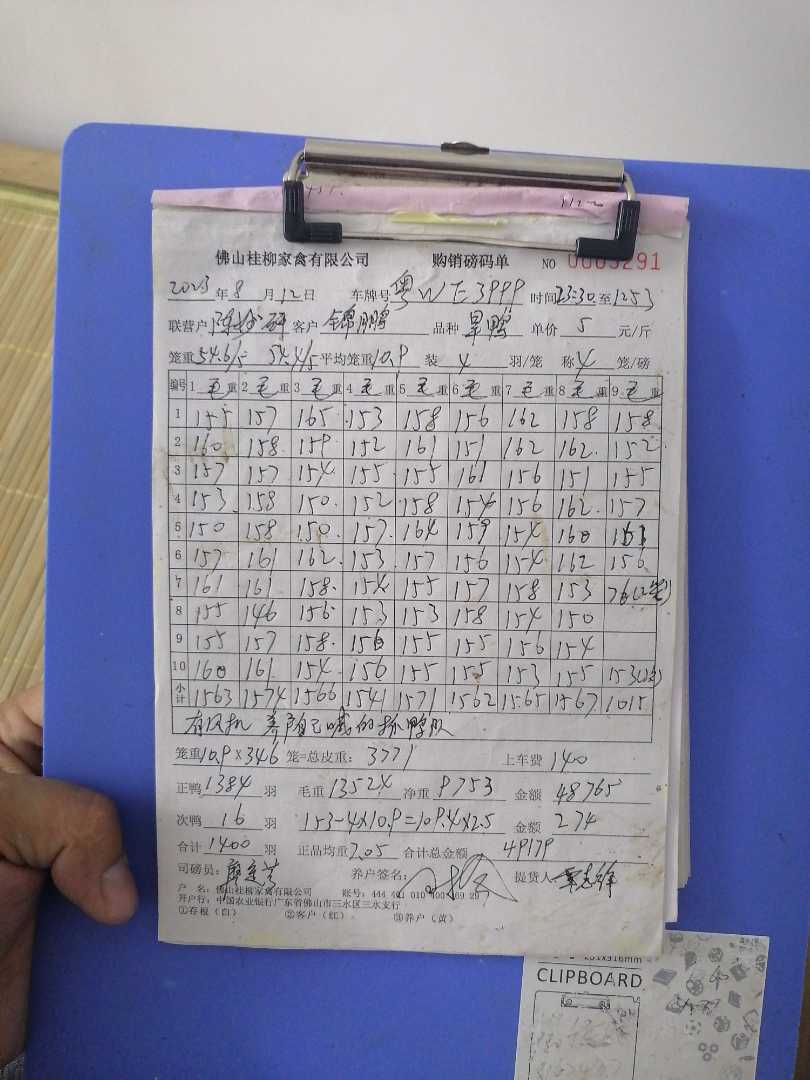 佛山桂柳家禽有限公司 购销磅码单 NO 0003291
2023年8月12日 车牌号粤WE3999 时间23:30至1253
联营户 客户 锦鹏 品种 旱鸭 单价 5 元/斤
笼重54.6/5 54.4/5平均笼重10.9 装 4 羽/笼 称 4 笼/磅
编号 1 毛重 2 毛重 3 毛重 4 毛重 5 毛重 6 毛重 7 毛重 8 毛重 9 毛重
1 155 157 165 153 158 156 162 158 158
2 160 158 159 152 161 151 162 162 152
3 157 157 154 155 155 161 156 151 155
4 153 158 150 152 158 154 156 162 157
5 150 158 150 157 164 159 154 160 161
6 157 161 162 153 157 156 154 162 156
7 161 161 158 154 155 157 158 153 76(2笼)
8 155 146 156 153 153 158 154 150
9 155 157 158 156 155 155 156 154
10 160 161 154 156 155 155 153 155 153
小计 1563 1574 1566 1541 1571 1562 1565 1567 1015
有风机 养户自己喊的抓鸭队
笼重10.9×346笼=总皮重: 3771 上车费 140
正鸭 1384 羽 毛重 13524 净重 9753 金额 48765
次鸭 16 羽 153-4×10.9=109.4×2.5 金额 274
合计 1400 羽 正品均重 7.05 合计总金额 49179
司磅员: 养户签名: 提货人
户 名: 佛山桂柳家禽有限公司 账号: 444 401 010 400
开户行: 中国农业银行广东省佛山市三水区三水支行
①存根(白) ②客户(红) ③养户(黄)
CLIPBOARD